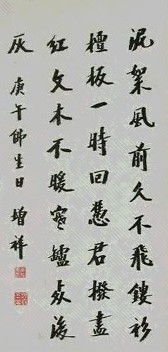 泥絮風前久不飛鏤衫
檀板一時回憑君撥盡
紅文木不暖寒鑪後
灰
庚午佛生日 增祥